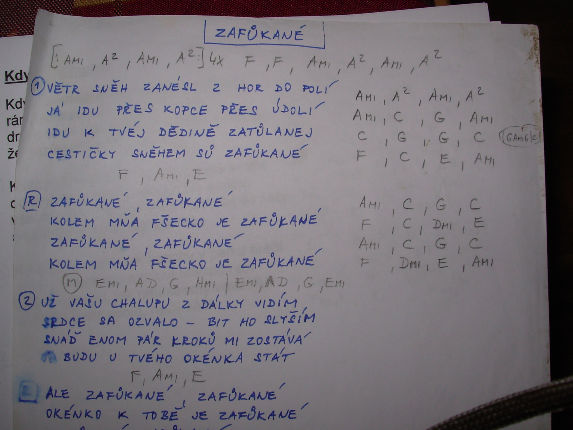 ZAFŮKANÉ
[: AMI, A², AMI, A² :] 4x F, F, AMI, A², AMI, A²
① VĚTR SNĚH ZANÉSL Z HOR DO POLÍ AMI, A², AMI, A²
JÁ IDU PŘES KOPCE PŘES ÚDOLÍ AMI, C, G, AMI
IDU K TVÉJ DĚDINĚ ZATÚLANEJ C, G, G, C
CESTIČKY SNĚHEM SÚ ZAFÚKANÉ F, C, E, AMI
F, AMI, E
R ZAFÚKANÉ, ZAFÚKANÉ AMI, C, G, C
KOLEM MŇA FŠECKO JE ZAFÚKANÉ F, C, DMI, E
ZAFÚKANÉ, ZAFÚKANÉ AMI, C, G, C
KOLEM MŇA FŠECKO JE ZAFÚKANÉ F, DMI, E, AMI
EMI, AD, G, HMI, EMI, AD, G, EMI
② UŽ VAŠU CHALUPU Z DÁLKY VIDÍM
SRDCE SA OZVALO - BIT HO SLYŠÍM
SNÁĎ ENOM PÁR KROKŮ MI ZOSTÁVÁ
BUDU U TVÉHO OKÉNKA STÁT
F, AMI, E
ALE ZAFÚKANÉ, ZAFÚKANÉ
OKÉNKO K TOBĚ JE ZAFÚKANÉ